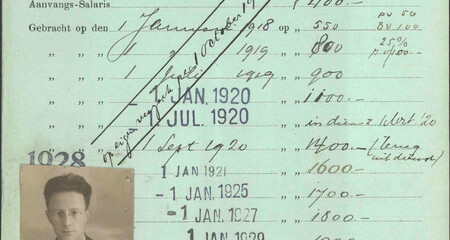 Aanvangs-Salaris „ „ 1400.-
Gebracht op den 1 Januari 1918 op „ 550 pu 50
„ „ „ 1 „ 1919 „ „ 800 25%
„ „ „ 1 Juli 1919 „ „ 900
„ „ „ 1 JAN. 1920 „ „ 1100.-
„ „ „ 1 JUL. 1920 „ „ in dienst 1 Oct. '20
„ „ „ 1 Sept 1920 „ „ 1400.- (terug uit dienst)
1928 1 JAN. 1921 „ „ 1600.-
-1 JAN. 1925 „ „ 1700.-
-1 JAN. 1927 „ „ 1800.-
1 JAN. 1929